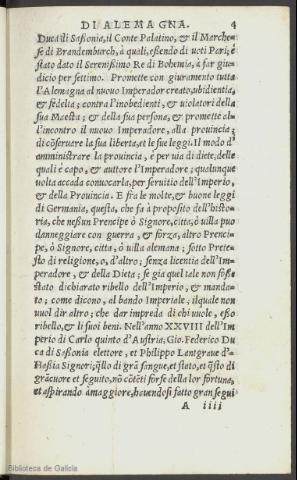 DI ALEMAGNA. 4
Duca di Sassonia, il Conte Palatino, & il Marche-
se di Brandemburch, à quali, essendo di uoti Pari; è
stato dato il Serenissimo Re di Bohemia, à far giu-
dicio per settimo. Promette con giuramento tutta
l'Alemagna al nuouo Imperador creato, ubidientia,
& fedelta; contra l'inobedienti, & uiolatori della
sua Maesta; & della sua persona, & promette al-
l'incontro il nuouo Imperadore, alla prouincia;
di cōseruare la sua liberta, et le sue leggi. Il modo d'
amministrare la prouincia, è per uia di diete, delle
quali è capo, & auttore l'Imperadore; qualunque
uolta accada conuocarla, per seruitio dell'Imperio,
& della Prouincia. E fra le molte, & buone leggi
di Germania, questa, che fa à proposito dell'histo-
ria, che nessun Principe ò Signore, citta, ò uilla puo
danneggiare con guerra, & forza, altro Prenci-
pe, ò Signore, citta, ò uilla alemana; sotto Prete-
sto di religione, o, d'altro; senza licentia dell'Im-
peradore, & della Dieta; se gia quel tale non fosse
stato dichiarato ribello dell'Imperio, & manda-
to; come dicono, al bando Imperiale; ilquale non
uuol dir altro; che dar impreda di chi uuole, esso
ribello, & li suoi beni. Nell'anno XXVIII dell'Im
perio di Carlo quinto d'Austria; Gio. Federico Du
ca di Sassonia elettore, et Philippo Lantgraue d'-
Hassia Signori; q̃llo di grã sangue, et stato, et q̃sto di
grãcuore et seguito, nõ cõtẽti forse della lor fortuna,
et aspirando à maggiore, hauendosi fatto gran segui
A iiii
Biblioteca de Galicia